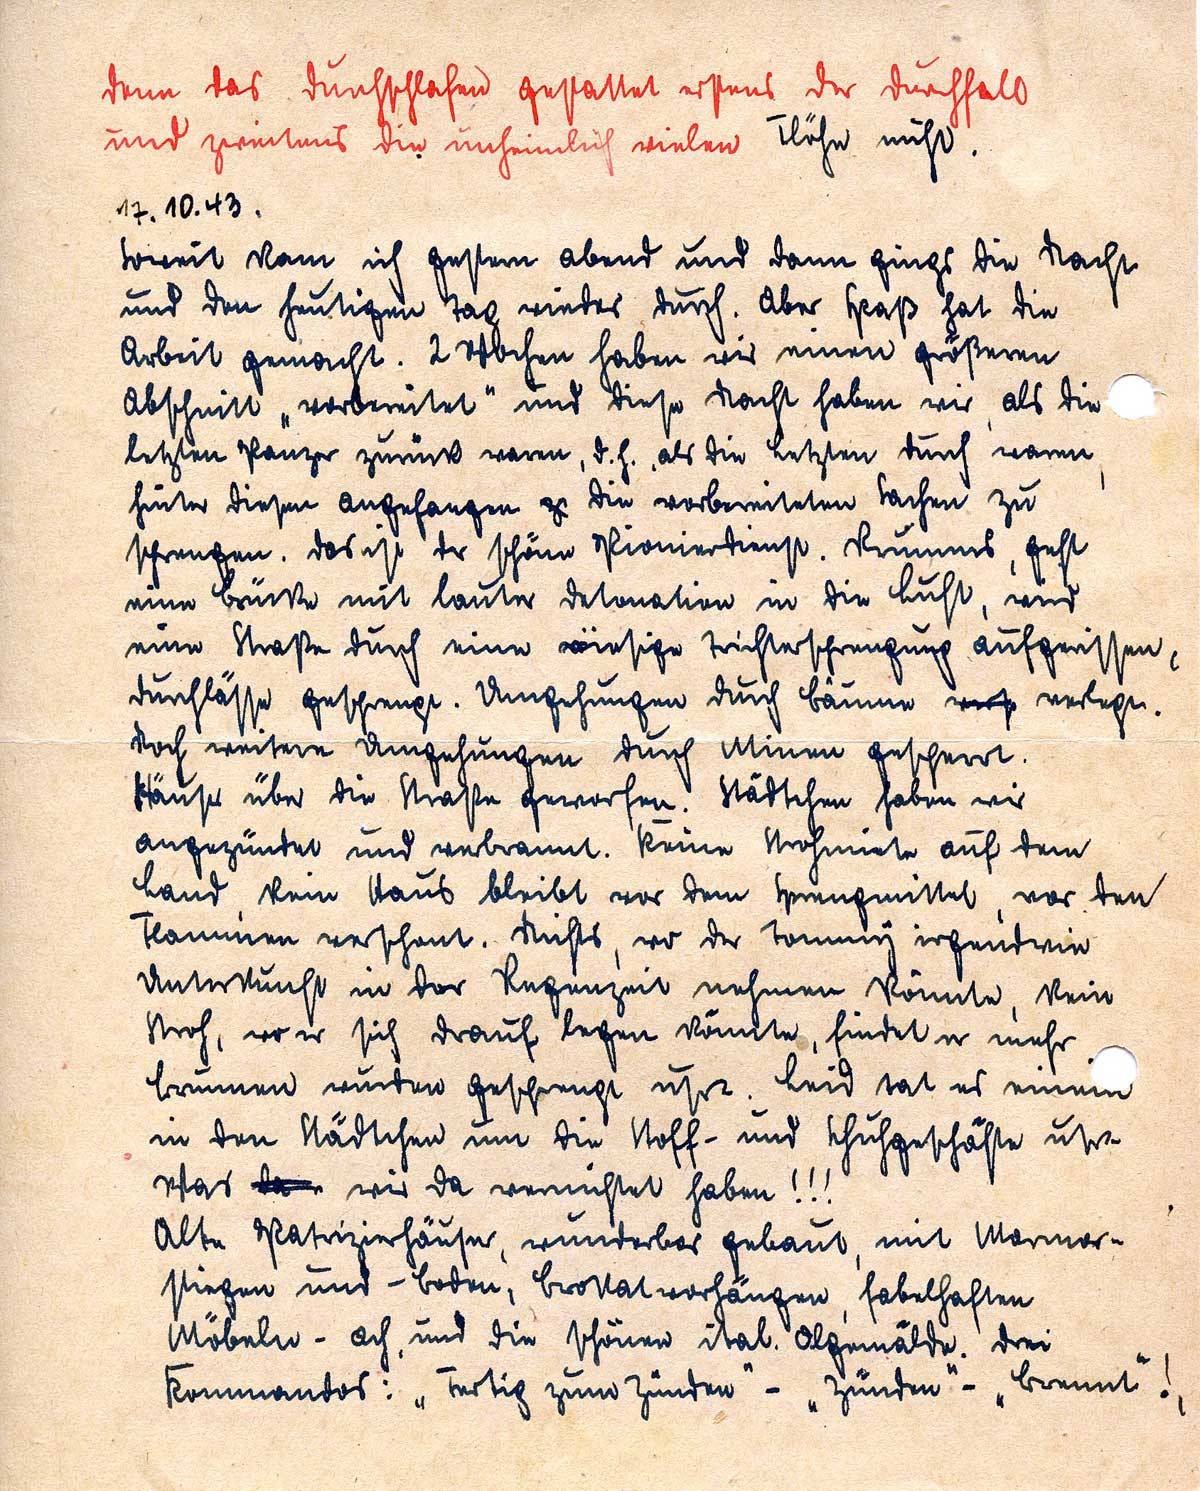 denn das Durchschlafen gestattet erstens der Durchfall
und zweitens die unheimlich vielen Flöhe nicht.
17.10.43.
Soweit kam ich gestern abend und dann gings die Nacht
und den heutigen Tag wieder durch. Aber Spaß hat die
Arbeit gemacht. 2 Wochen haben wir einen größeren
Abschnitt „vorbereitet" und diese Nacht haben wir, als die
letzten Panzer zurück waren, d.h., als die Letzten durch waren,
hinter diesen angefangen die vorbereiteten Sachen zu
sprengen. Das ist der schöne Pionierdienst. Krumms, geht
eine Brücke mit lauter Detonation in die Luft, wird
eine Straße durch eine riesige Trichtersprengung aufgerissen,
Durchlässe gesprengt. Umgehungen durch Bäume verlegt.
Noch weitere Umgehungen durch Minen gesperrt.
Häuser über die Straße geworfen. Städtchen haben wir
angezündet und verbrannt. Keine Strohmiete auf dem
Land, kein Haus bleibt vor dem Sprengmittel, vor den
Flammen verschont. Nichts, wo der Tommy irgendwie
Unterkunft in der Regenzeit nehmen könnte, kein
Stroh, wo er sich drauf legen könnte, findet er mehr.
Brunnen wurden gesprengt usw. Leid tat es einem
in den Städtchen um die Stoff- und Schuhgeschäfte usw.
Was wir da vernichtet haben!!!
Alte Patrizierhäuser, wunderbar gebaut, mit Marmor-
stiegen und -boden, Brokatvorhängen, fabelhaften
Möbeln - ach, und die schönen ital. Ölgemälde. Drei
Kommandos: „Fertig zum Zünden" - „Zünden" - „Brennt"!,